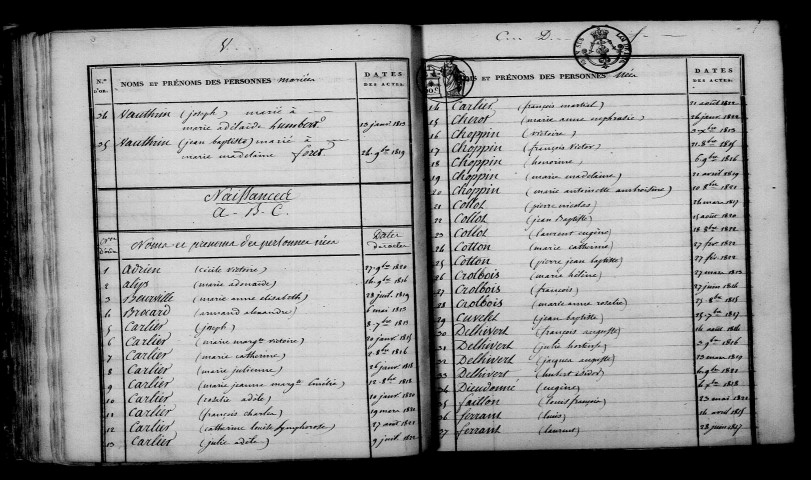 V.
N.os D'OR. NOMS ET PRÉNOMS DES PERSONNES mariées DATES DES ACTES.
34 Vauthrin (joseph) marié à
marie adélaïde humbert 13 janv 1813
35 Vauthrin (jean baptiste) marié à
marie madelaine foret 26 9bre 1819
Naissances
A - B - C.
Nos d'ordre Noms et prenoms des personnes nées Dates des actes
1 Adrien (cécile victoire) 27 9bre 1820
2 alips (marie adonaide) 16 9bre 1816
3 Bourville (marie anne elisabeth) 28 juil 1819
4 Brocard (armand alexandre) 6 mai 1813
5 Carlier (joseph) 3 7bre 1813
6 Carlier (marie margte victoire) 20 janv 1815
7 Carlier (marie catherine) 2 8bre 1816
8 Carlier (marie julienne) 26 janv 1818
9 Carlier (marie jeanne margte) 12 8bre 1818
10 Carlier (rosalie adèle) 10 janv 1820
11 Carlier (françois charles) 19 mars 1821
12 Carlier (catherine louise symphorose) 27 août 1821
13 Carlier (julie adèle) 9 juil. 1822
C D
NOMS ET PRÉNOMS DES PERSONNES nées DATES DES ACTES.
14 Carlier (françois martial) 21 août 1822
15 Cherot (marie anne euphrasie) 26 janv 1822
16 Choppin (victoire) 3 Xbre 1813
17 Choppin (françois victor) 21 8bre 1815
18 Choppin (honorine) 6 9bre 1816
19 Choppin (marie madelaine) 21 avril 1819
20 Choppin (marie antoinette ambroisine) 10 8bre 1821
21 Collot (pierre nicolas) 26 mars 1817
22 Collot (jean Baptiste) 15 août 1820
23 Collot (laurent eugène) 18 8bre 1822
24 Cotton (marie catherine) 27 fév 1822
25 Cotton (pierre jean baptiste) 27 fév 1822
26 Crolbois (marie hélène) 27 mars 1813
27 Crolbois (françois) 27 juin 1816
28 Crolbois (marie anne rosalie) 27 8bre 1818
29 Cuvelet (jean baptiste) 25 7bre 1817
30 Delhivert (françois auguste) 16 août 1816
31 Delhivert (julie hortense) 3 9bre 1816
32 Delhivert (jacques auguste) 13 mars 1819
33 Delhivert (hubert isidor) 6 9bre 1821
34 Dieudonné (eugène) 4 Xbre 1818
35 faillon (louis françois) 23 mai 1821
36 ferrant (louis) 16 avril 1815
37 ferrant (laurent) 28 juin 1817